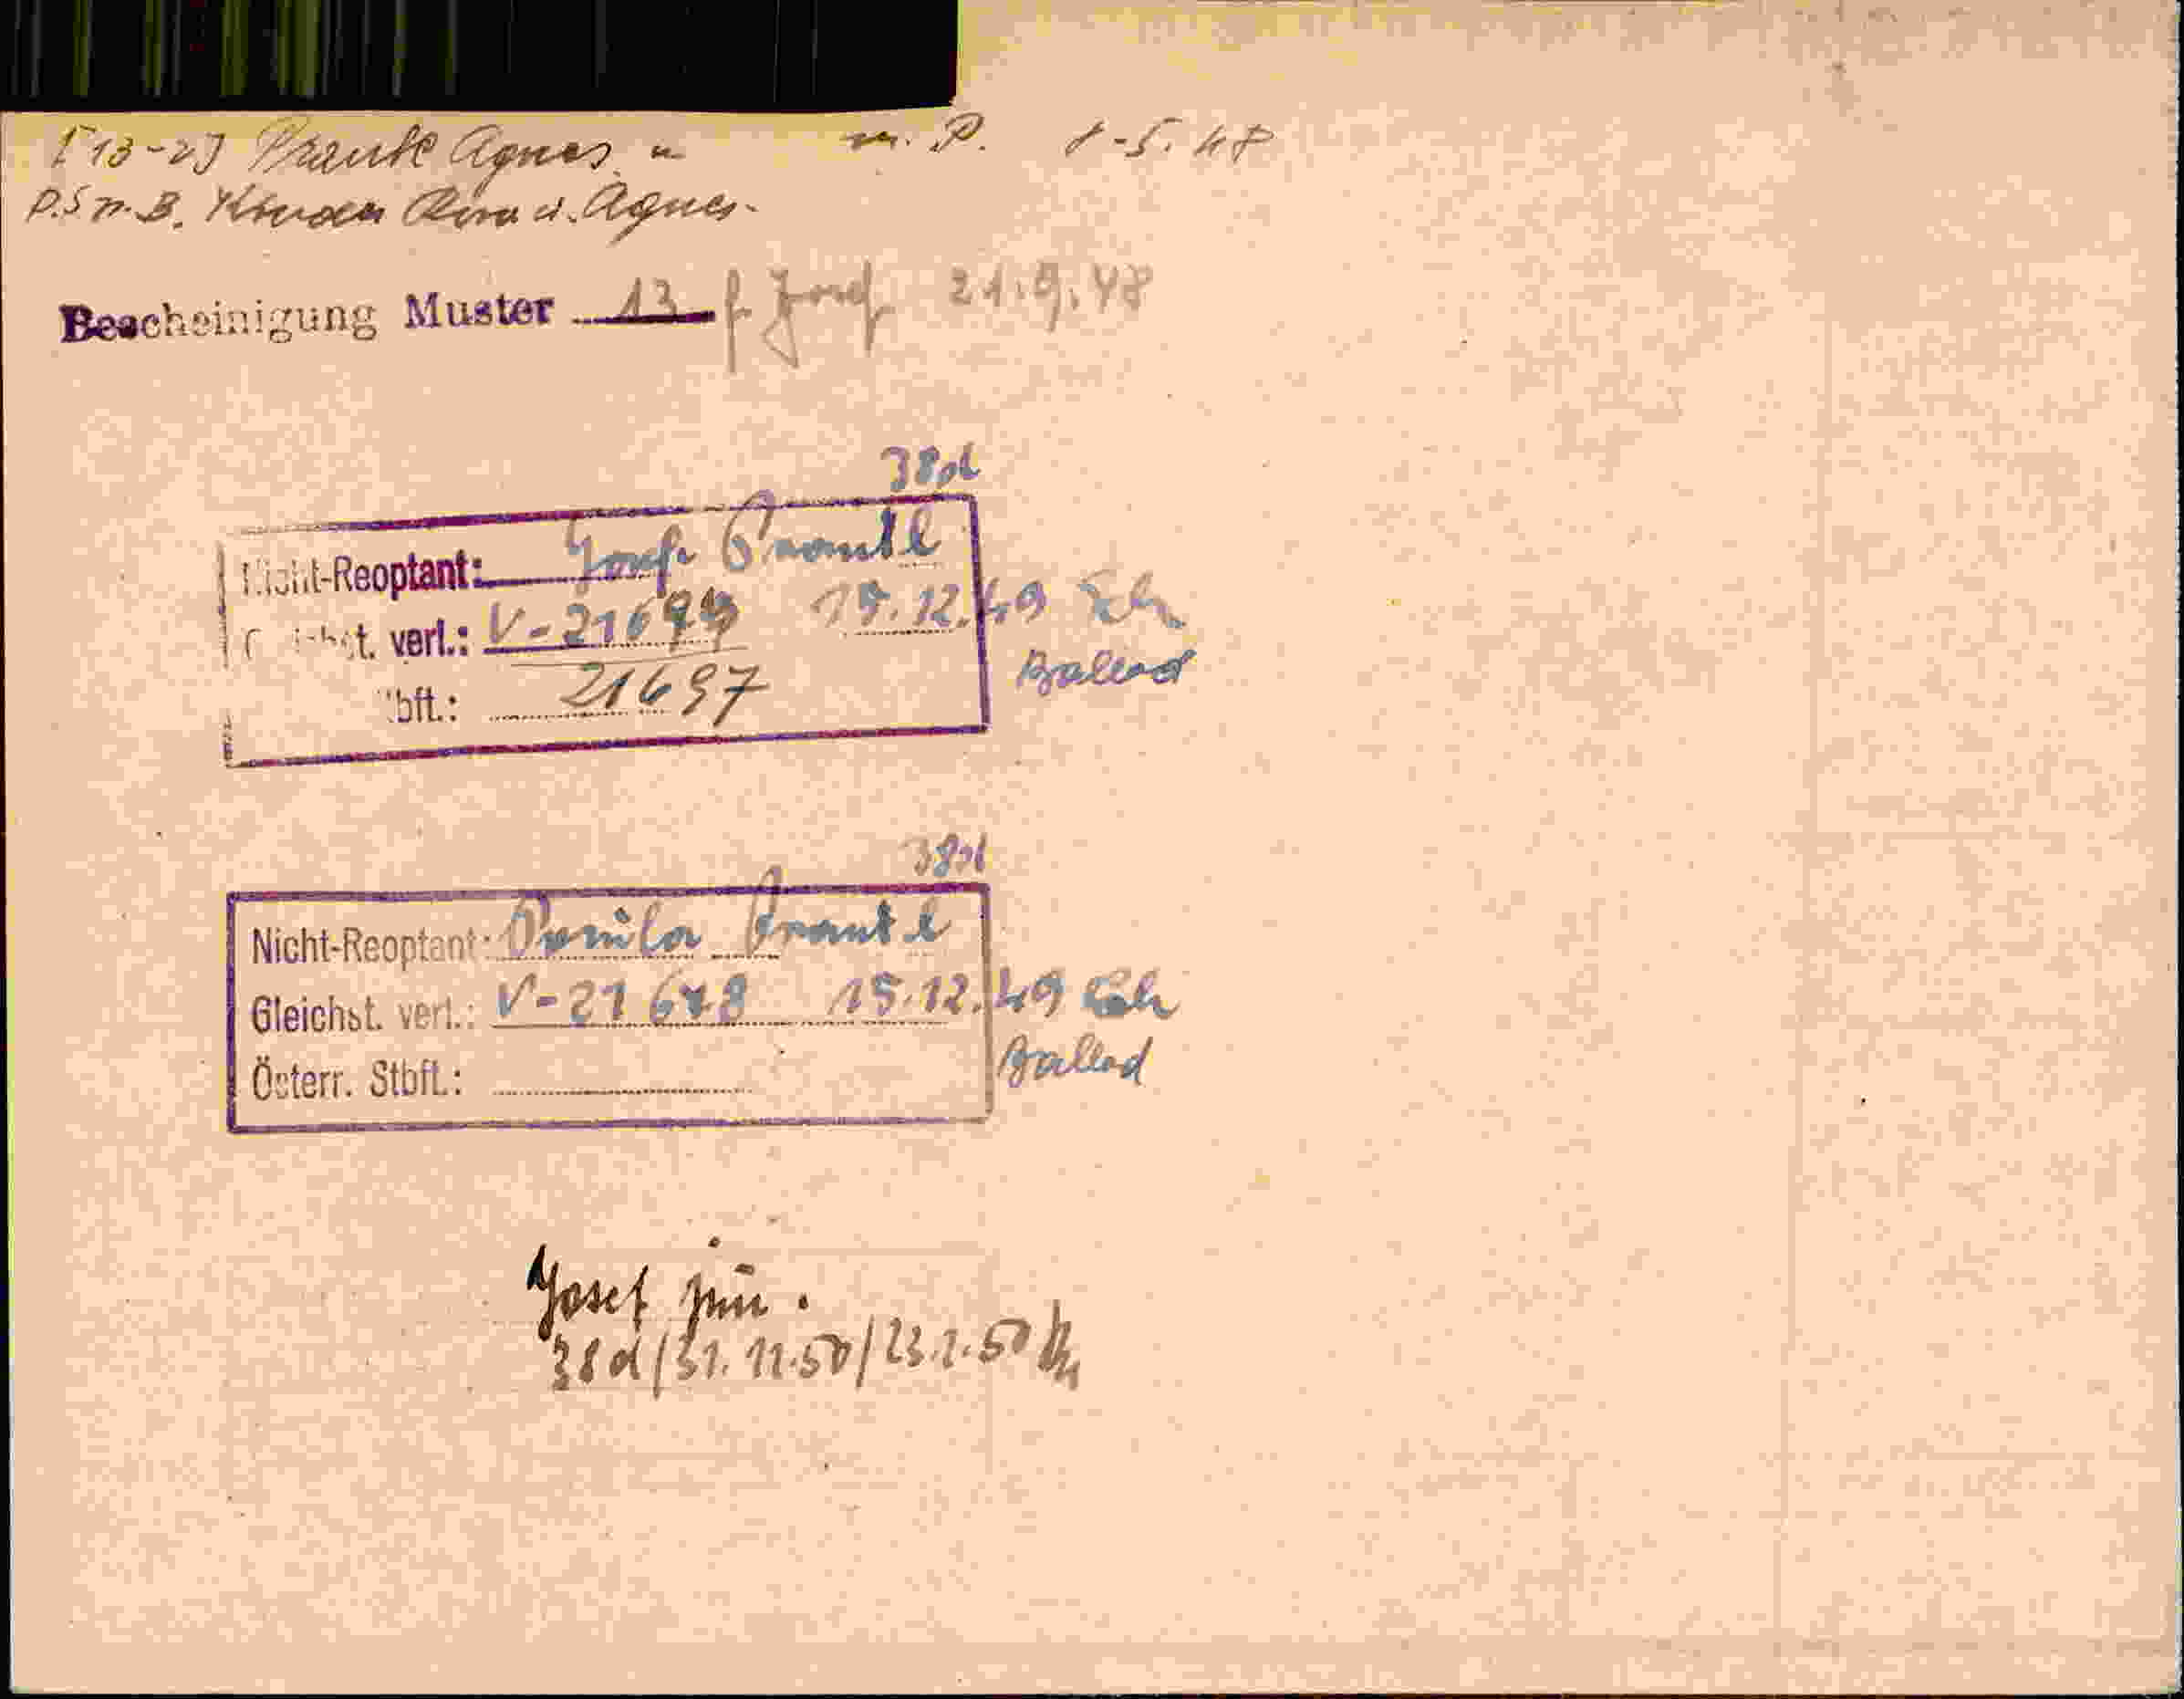 [13-2] Prantl Agnes u m. P. 1-5.48
P.S m. B. Kinder Rosa u. Agnes.
Bescheinigung Muster 13 f. Josef 21.9.48
38d
Nicht-Reoptant: Josef Prantl
verl.: V-21699 15.12.49
Ballad
bft.: 21697
38d
Nicht-Reoptant: Prantl
Gleichst. verl.: V-21698 15.12.49
Ballad
Österr. Stbft.:
Josef jun.
38d/31.11.50/23.1.50